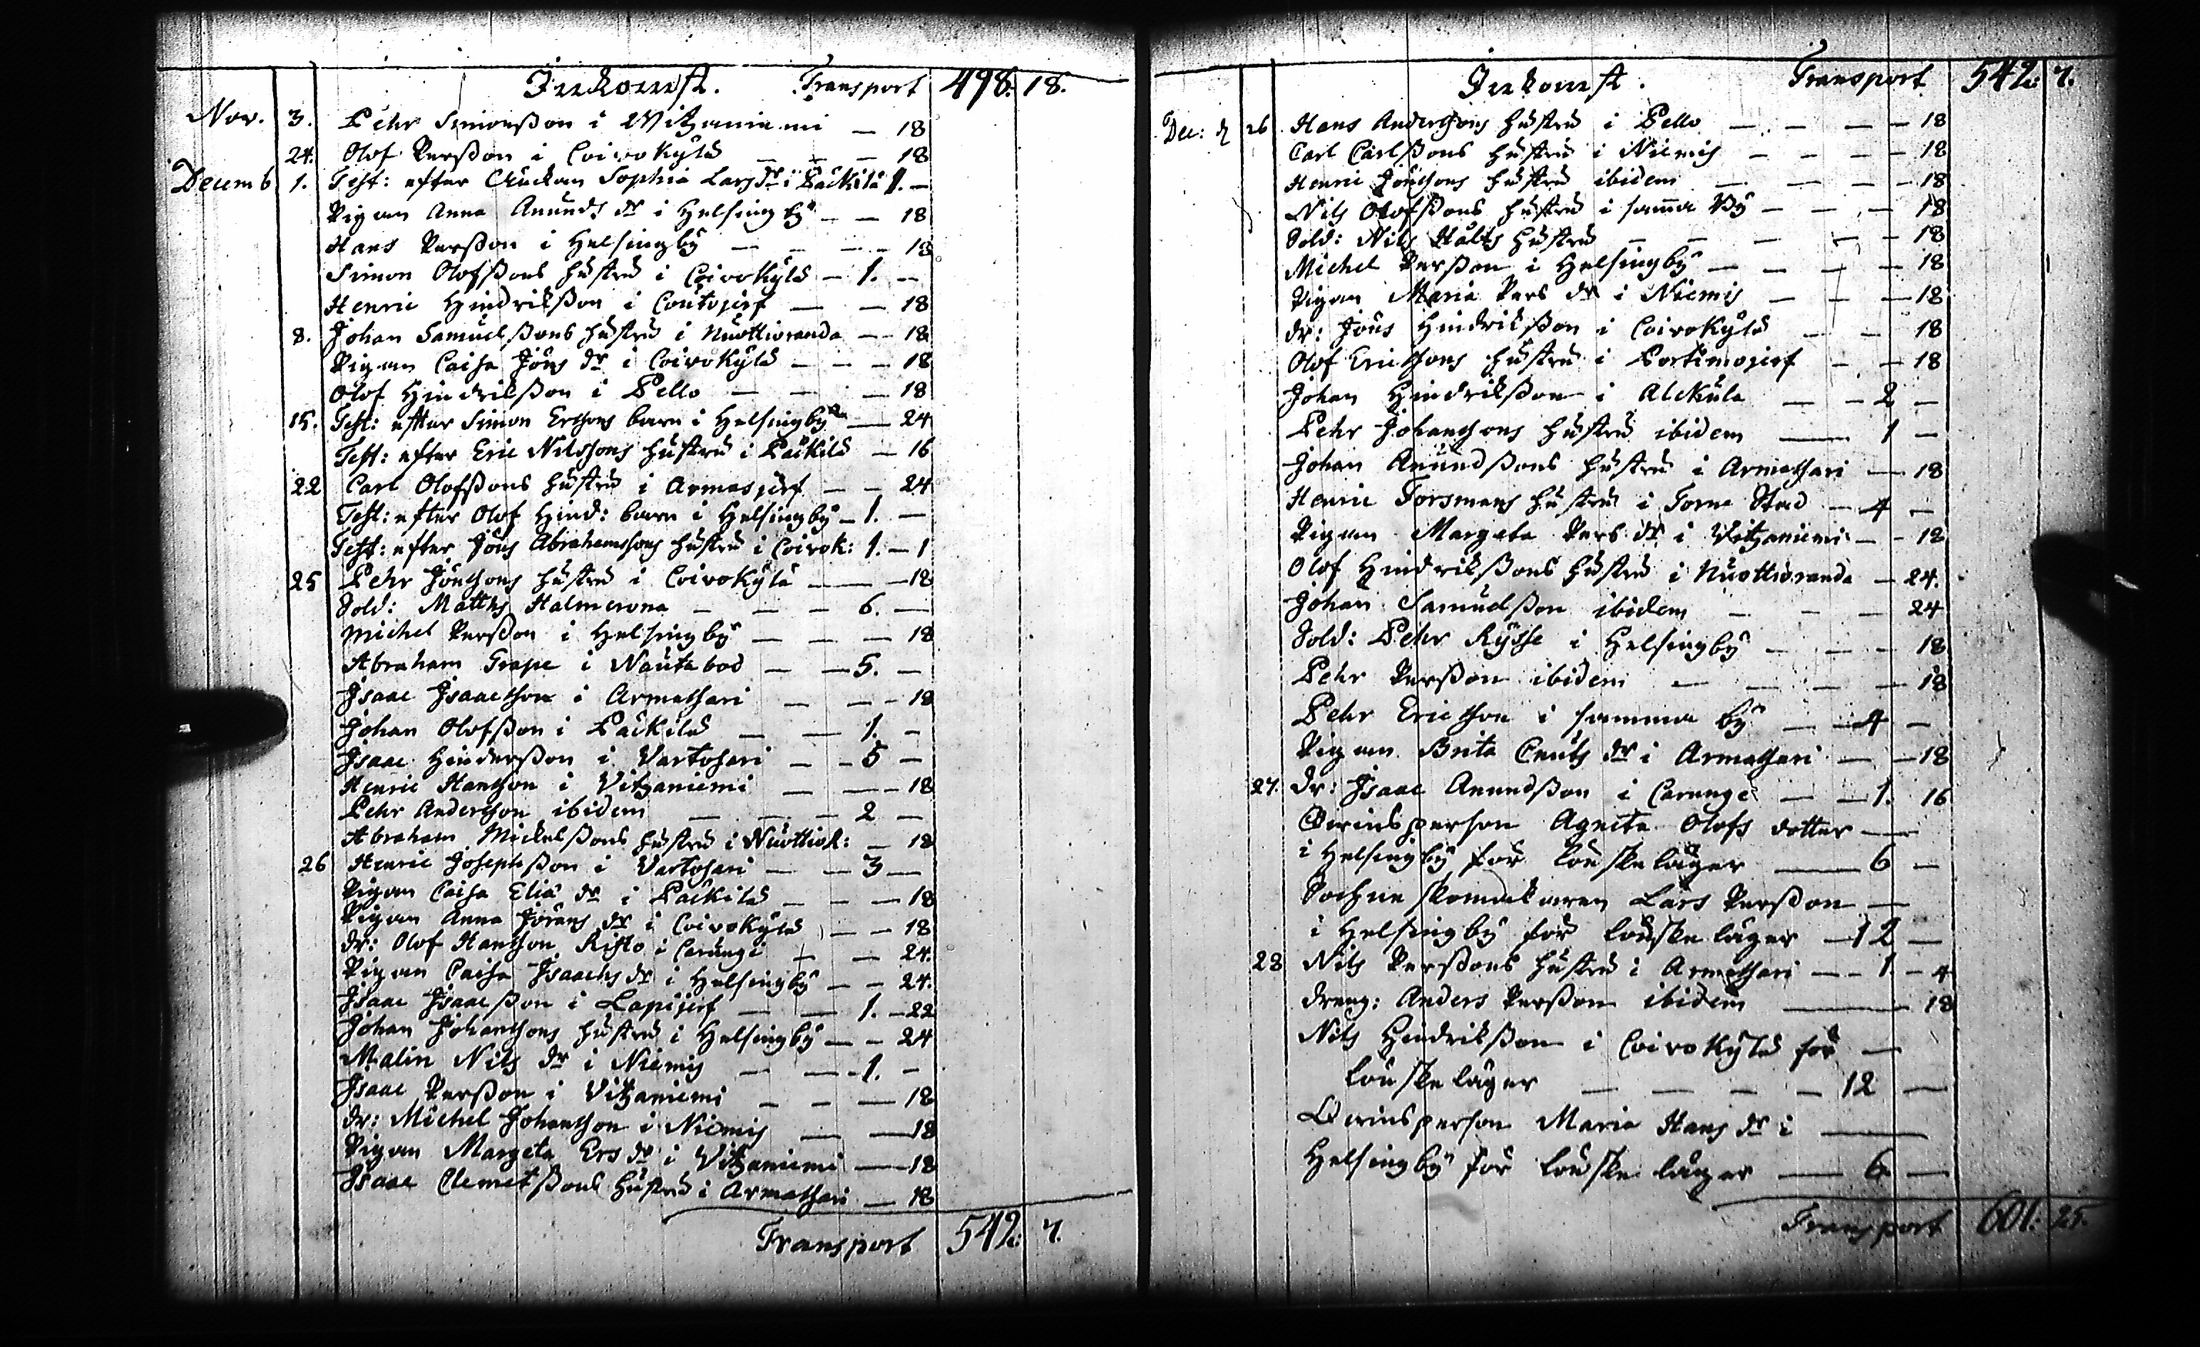 Inkomst. Transport 498: 18.
Nov. 3. Pehr Simonsson i Witzaniemi — 18
24. Olof Persson i Coivokylä — — — 18
Decemb 1. Test: efter Enckan Sophia Lars dr i Päckilä 1. —
Pigan Anna Anunds dr i Helsingby — — 18
Hans Persson i Helsingby — — — — 18
Simon Olofssons hustru i Coivokylä — 1. —
Henric Hindriksson i Coutojerf — — 18
8. Johan Samuelssons hustru i Nuottioranda — — 18
Pigan Caisa Jöns dr i Coivokylä — — — 18
Olof Hindriksson i Pello — — — 18
15. Test: efter Simon Ersons barn i Helsingby — 24
Test: efter Eric Nilssons hustru i Päckilä — 16
22 Carl Olofssons hustru i Armasjerf — — 24
Test: efter Olof Hind: barn i Helsingby — 1. —
Test: efter Jöns Abrahamssons hustru i Coivok: 1. — 1
25 Pehr Jönssons hustru i Coivokylä — — — 18
Sold: Matths Halmerona — — — 6. —
Michel Persson i Helsingby — — — 18
Abraham Grape i Nautabod — — 5. —
Isaac Isaacsson i Armassari — — — 18
Johan Olofsson i Päckilä — — 1. —
Isaac Hindersson i Vartosari — — 5 —
Henric Hansson i Vitzaniemi — — — 18
Pehr Andersson ibidem — — — 2 —
Abraham Mickelssons hustru i Nuottiok: — 18
26 Henric Josephsson i Vartosari — — 3 —
Pigan Caisa Eliæ dr i Päckilä — — — 18
Pigan Anna Jörans dr i Coivokylä — — 18
dr: Olof Hansson Risto i Carungi — — 24.
Pigan Caisa Isaachs dr i Helsingby — — 24.
Isaac Isaacsson i Lapijerf — — 1. — 22
Johan Johanssons hustru i Helsingby — — 24
Malin Nils dr i Niemis — — 1. —
Isaac Persson i Vitzaniemi — — — 18
dr: Michel Johansson i Niemis — — 18
Pigan Margeta Ers dr i Vitzaniemi — 18
Isaac Clemetssons hustru i Armassari — 18
Transport 542: 7.
Inkomst. Transport 542: 7.
Dec: d 26 Hans Anderssons hustru i Pello — — — — 18
Carl Carlssons hustru i Niemis — — — — 18
Henric Jönssons hustru ibidem — — — — 18
Nils Olofssons hustru i samma By — — — 18
Sold: Nils Hälts hustru — — — — 18
Michel Persson i Helsingby — — — — 18
Pigan Maria Pers dr i Niemis — — — 18
dr: Jöns Hindriksson i Coivokylä — — 18
Olof Ericssons hustru i Portimojerf — — 18
Johan Hindriksson i Alckula — — 2 —
Pehr Johanssons hustru ibidem — 1 —
Johan Anundssons hustru i Armassari — 18
Henric Forsmans hustru i Torne Stad — 4 —
Pigan Margeta Pers dr i Vitzaniemi — — 18
Olof Hindrikssons hustru i Nuottioranda — 24.
Johan Samuelsson ibidem — — — 24
Sold: Pehr Rysse i Helsingby — — — 18
Pehr Persson ibidem — — — — 18
Pehr Ericsson i samma by — — 4 —
Pigan Brita Cnuts dr i Armassari — — 18
27. dr: Isaac Anundsson i Carunge — — 1. 16
Qwinsperson Agneta Olofs dotter —
i Helsingby för löuskeläger — 6 —
Sochneskomakaren Lars Persson —
i Helsingby för löuskeläger — 12 —
28 Nils Perssons hustru i Armassari — — 1. — 4
dreng: Anders Persson ibidem — 18
Nils Hindriksson i Coivokylä för —
löuskeläger — — — — — 12 —
Qwinsperson Maria Hans dr i —
Helsingby för löuskeläger — 6 —
Transport 601: 25.